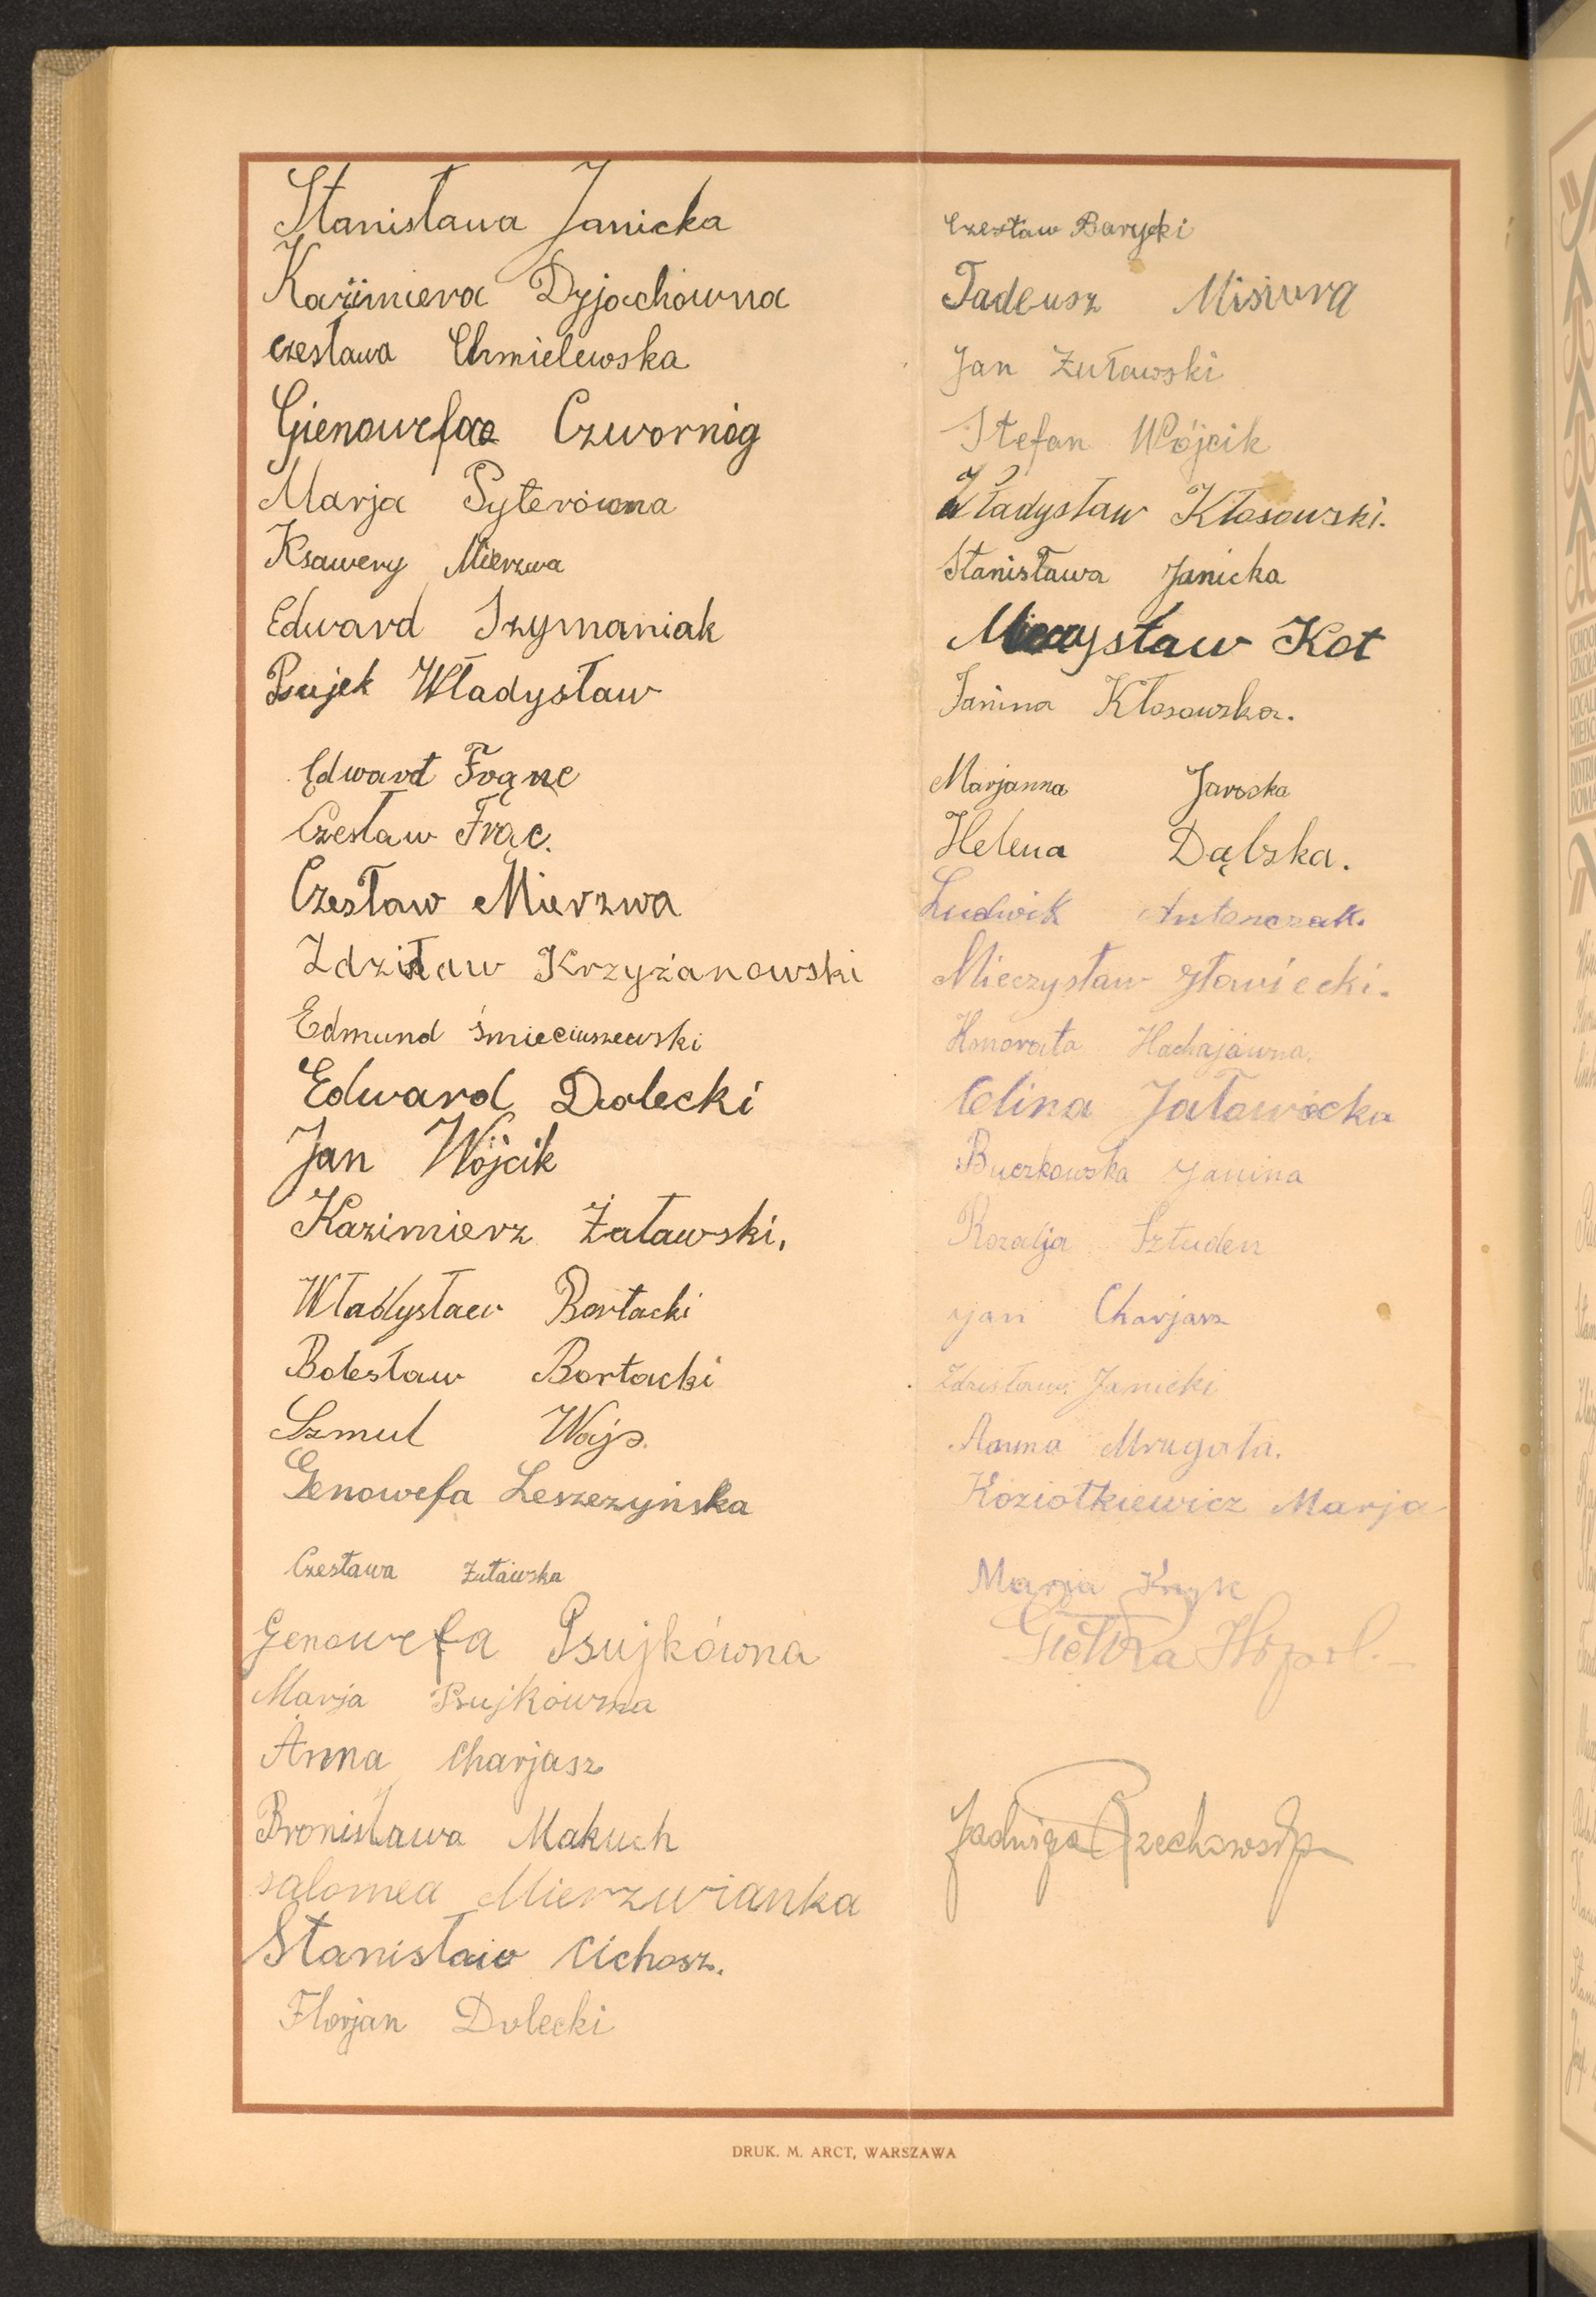 Stanisława Janicka
Kazimiera Dyjachówna
Czesława Chmielewska
Gienowefa Czwornóg
Marja Syterówna
Ksawery Mierzwa
Edward Szymaniak
Psujek Władysław
Edward Frąnc
Czesław Frąc.
Czesław Mierzwa
Zdzisław Krzyżanowski
Edmund Śmieciuszewski
Edward Dolecki
Jan Wójcik
Kazimierz Żuławski.
Władysław Bortacki
Bolesław Bortacki
Szmul Wajs.
Genowefa Leszczyńska
Czesława Żuławska
Genowefa Psujkówna
Marja Psujkówna
Anna Charjasz
Bronisława Makuch
Salomea Mierzwianka
Stanisław Cichosz.
Florjan Dolecki
Czesław Barycki
Tadeusz Misiura
Jan Żuławski
Stefan Wójcik
Władysław Kłosowski.
Stanisława Janicka
Mieczysław Kot
Janina Kłosowska.
Marjanna Jarocka
Helena Dąbska.
Ludwik Antonczak.
Mieczysław
Honorata Hachajówna.
Celina Jaławiecka
Buczkowska Janina
Rozalja Sztuden
Jan Charjasz
Zdzisław Janicki
Anna Mrugała.
Koziołkiewicz Marja
Marja
Jadwiga Rzechowska
DRUK. M. ARCT, WARSZAWA